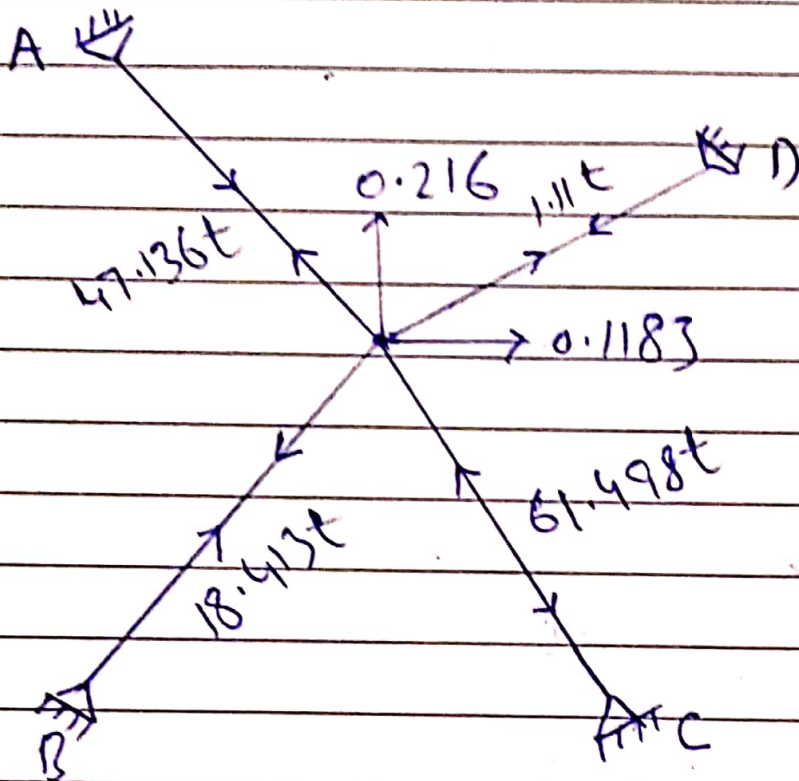 A
D
0.216
1.11t
47.136t
0.1183
61.498t
18.413t
B
C